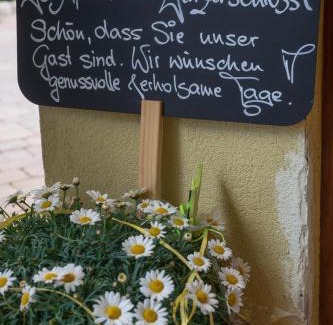 Schön, dass Sie unser
Gast sind. Wir wünschen
genussvolle & erholsame Tage.